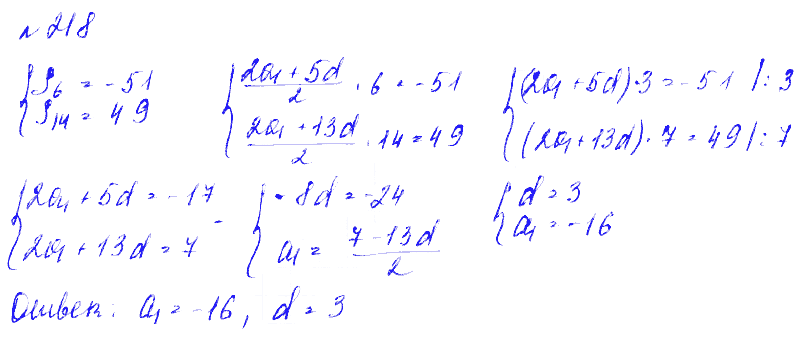 № 218
{ S₆ = -51
S₁₄ = 49
{ (2a₁ + 5d)/2 · 6 = -51
(2a₁ + 13d)/2 · 14 = 49
{ (2a₁ + 5d) · 3 = -51 | : 3
(2a₁ + 13d) · 7 = 49 | : 7
{ 2a₁ + 5d = -17
2a₁ + 13d = 7 -
{ -8d = -24
a₁ = (7 - 13d)/2
{ d = 3
a₁ = -16
Ответ: a₁ = -16, d = 3